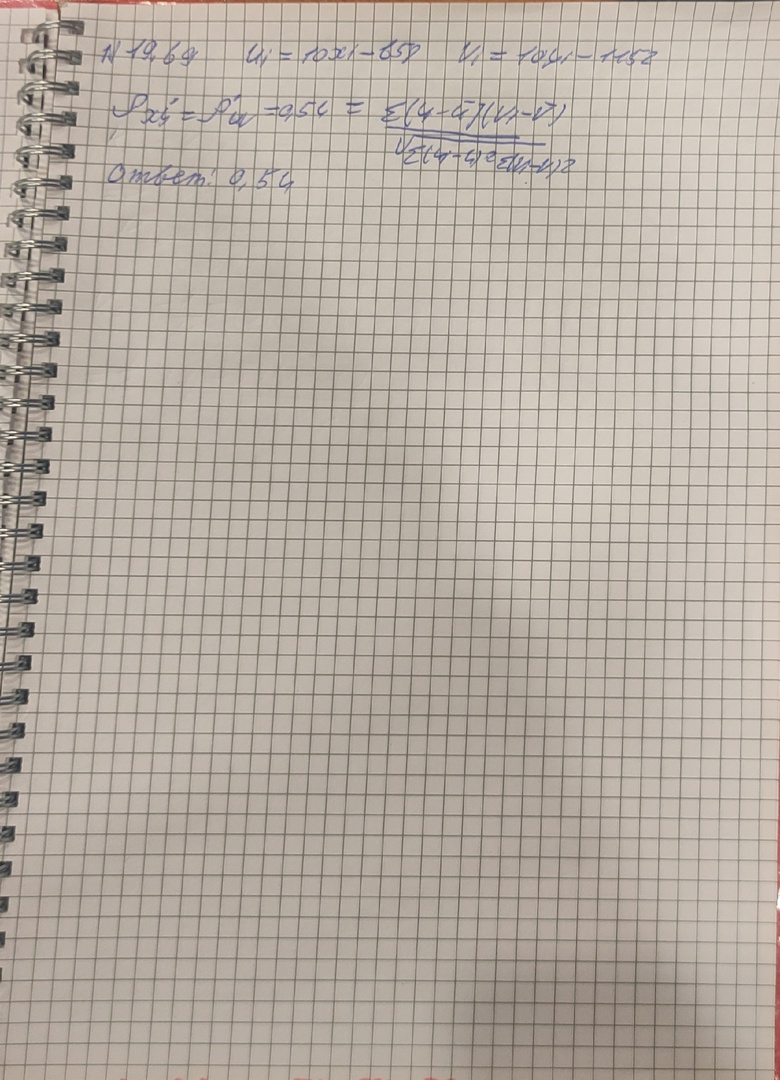 N 19.69 Ui = 10xi - 650 Vi = 10yi - 1152
ρxy = ρuv = 0,54 = Σ(Ui-Ū)(Vi-V̄) / √Σ(Ui-Ū)²Σ(Vi-V̄)²
Ответ: 0,54